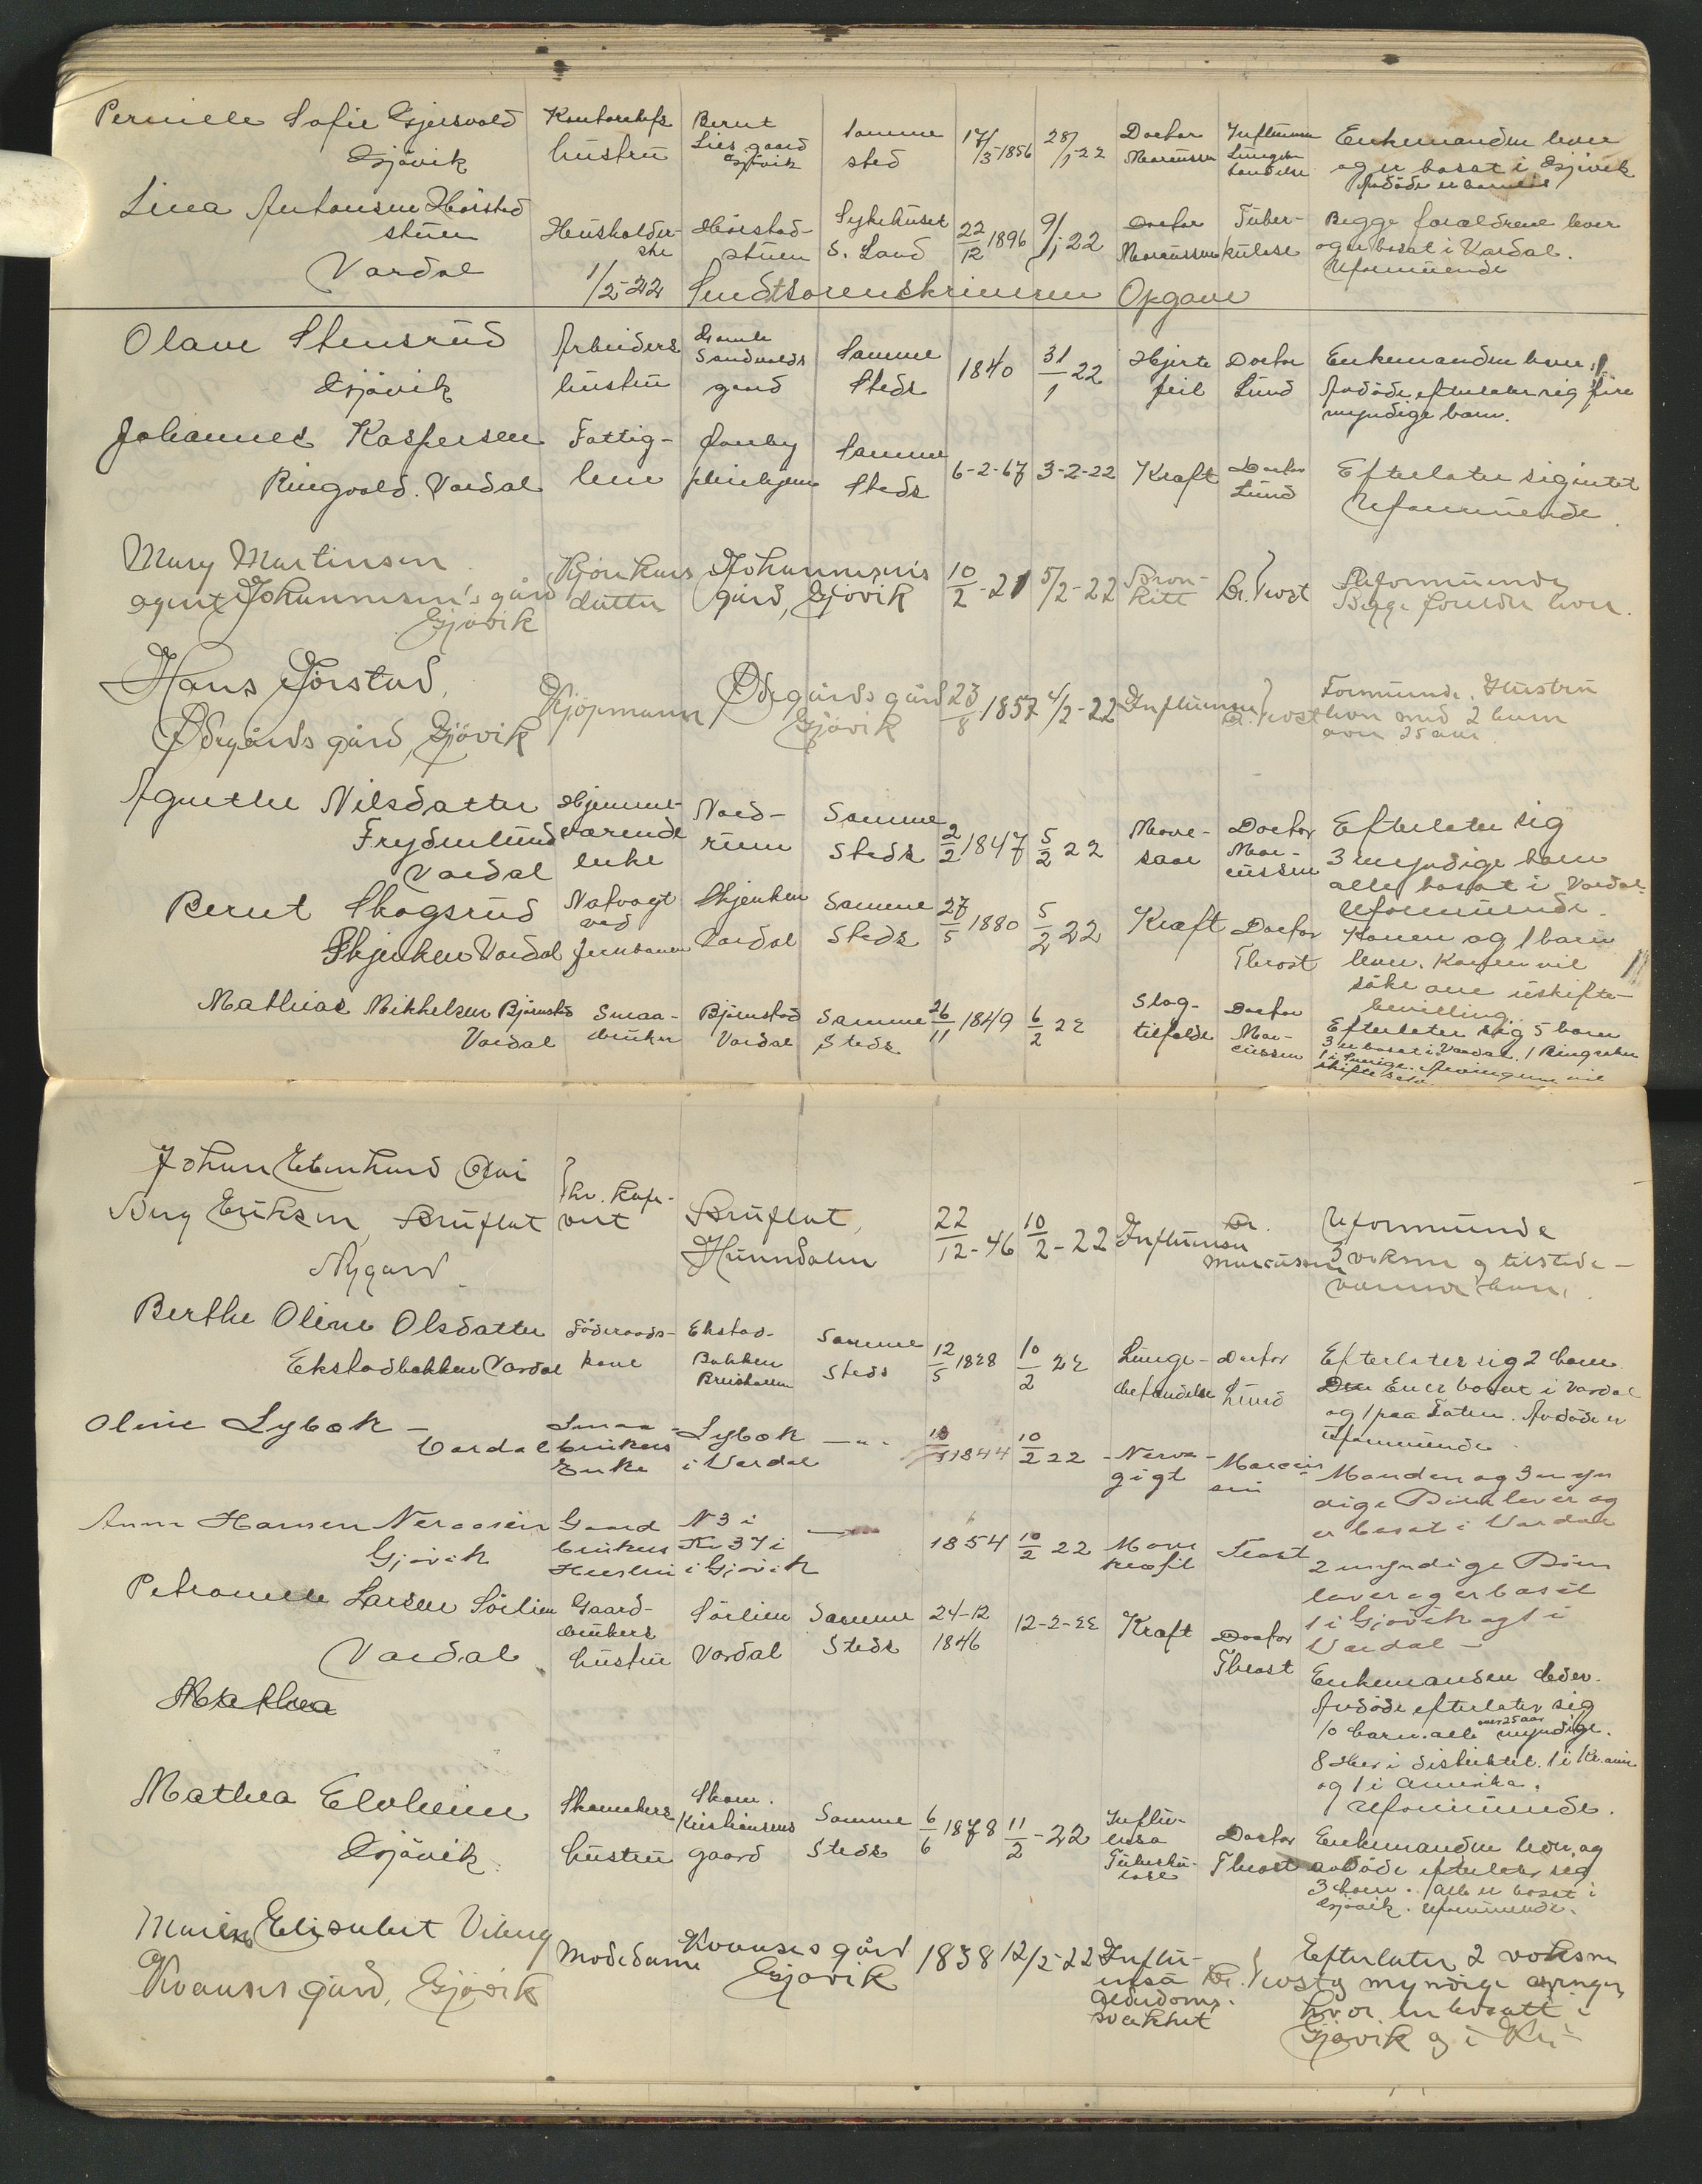 Pernille Sofie Gjersvold Gjøvik Kontorchefs hustru Bernt Lies gaard Gjøvik Samme sted 17/3-1856 28/1-22 Doctor Marcussen Influensa Lungebetændelse Enkemanden lever
og er bosat i Gjøvik
Avdøde er barnløs
Lina Antonsen Hørstad
stuen Vardal Husholderske Hørstadstuen Sykehuset S. Land 22/12 1896 9/1 22 Doctor Marcussen Tuberkulose Begge forældrene lever
og er bosat i Vardal.
Uformuende
1/2-22 Sendt sorenskriveren Opgave
Olave Stensrud Gjøvik Arbeiders hustru Gamle Sandvolds gaard Samme Steds 1840 31/1 22 Hjertefeil Doctor Lund Enkemanden lever.
Avdøde efterlater sig fire
myndige barn.
Johannes Kaspersen
Ringvold. Vardal Fattiglem pleiehjem Samme Steds 6-2-67 3-2-22 Kræft Doctor Lund Efterlater sig intet
Uformuende.
Mary Martinsen
agent Johannesen's gård
Gjøvik datter Johannesens gård, Gjøvik 10/2-21 5/2-22 Bronkitt Dr. Trost Uformuende
Begge foreldre lever.
Hans Gjørstad,
Ødegårds gård, Gjøvik Kjøpmann Ødegårds gård Gjøvik 23/8 1857 4/2-22 Influensa Dr. Trost Formuende. Hustru
lever med 2 barn
over 25 aar
Agnethe Nilsdatter
Frydenlund
Vardal Hjemmeværende enke Nordrum Samme Steds 2/2 1847 5/2 22 Mavesaar Doctor Marcussen Efterlater sig
3 myndige barn
alle bosat i Vardal.
Uformuende.
Bernt Skogsrud
Skjerken Vardal Natvagt ved Jernbanen Skjerken Vardal Samme Steds 27/5 1880 5/2 22 Kræft Doctor Throst Konen og 1 barn
lever. Konen vil
søke om uskifte-
bevilling.
Mathias Mikkelsen Bjørnstad
Vardal Smaabruker Bjørnstad Vardal Samme Steds 26/11 1849 6/2 22 Slagtilfelde Doctor Marcussen Efterlater sig 5 barn
3 er bosat i Vardal. 1 Ringsaker
1 i Sverige. Arvingene vil
skifte selv.
Johan Eberhard Olai
Berg Eriksen, Bruflat
Nygard Bruflat, Hunndalen 22/12-46 10/2-22 Influensa Dr. Marcussen Uformuende
3 voksne og tilstede-
værende barn.
Berthe Oline Olsdatter
Ekstadbakken Vardal Føderaadskone Ekstad-Bakken Samme Steds 12/5 1828 10/2 22 Lungebetendelse Doctor Lund Efterlater sig 2 barn
En er bosat i Vardal
og 1 paa Toten. Avdøde er
uformuende.
Oline Lybæk -
Vardal Smaabrukers Enke Lybæk i Vardal - " - 1844 10/2 22 Nervegigt Marcussen Manden og 3 myn
dige Børn lever og
er bosat i Vardal
Anna Hansen Neraasen
Gjøvik Gaardbrukers Hustru N 3 i Kv 37 i Gjøvik 1854 10/2 22 Mavekræft Trost 2 myndige Børn
lever og er bosat
1 i Gjøvik og 1 i
Vardal -
Petronelle Larsen Sørlien
Vardal Gaardbrukers hustru Sørlien Vardal Samme Steds 24-12 1846 12-2-22 Kræft Doctor Throst Enkemanden lever.
Avdøde efterlater sig
10 barn. alle over 25 aar myndige.
8 her i distriktet. 1 i Kr.ania
og 1 i Amerika.
Uformuende.
Mathea
Mathea Elvheim
Gjøvik. Skomakers hustru Skom. Kristiansens gaard Samme Steds 6/6 1878 11/2-22 Influensa Tuberkulose Doctor Throst Enkemanden lever, og
avdøde efterlater sig
3 barn. Alle er bosat i
Gjøvik. Uformuende.
Elisabet Viberg
Kvarnes gård, Gjøvik Modedame Kvarnes gård Gjøvik 1838 12/2-22 Influensa Alderdomssvakhet Dr. Trost Efterlater 2 voksne
og myndige arvinger,
hvor en bosatt i
Gjøvik og i Kr.